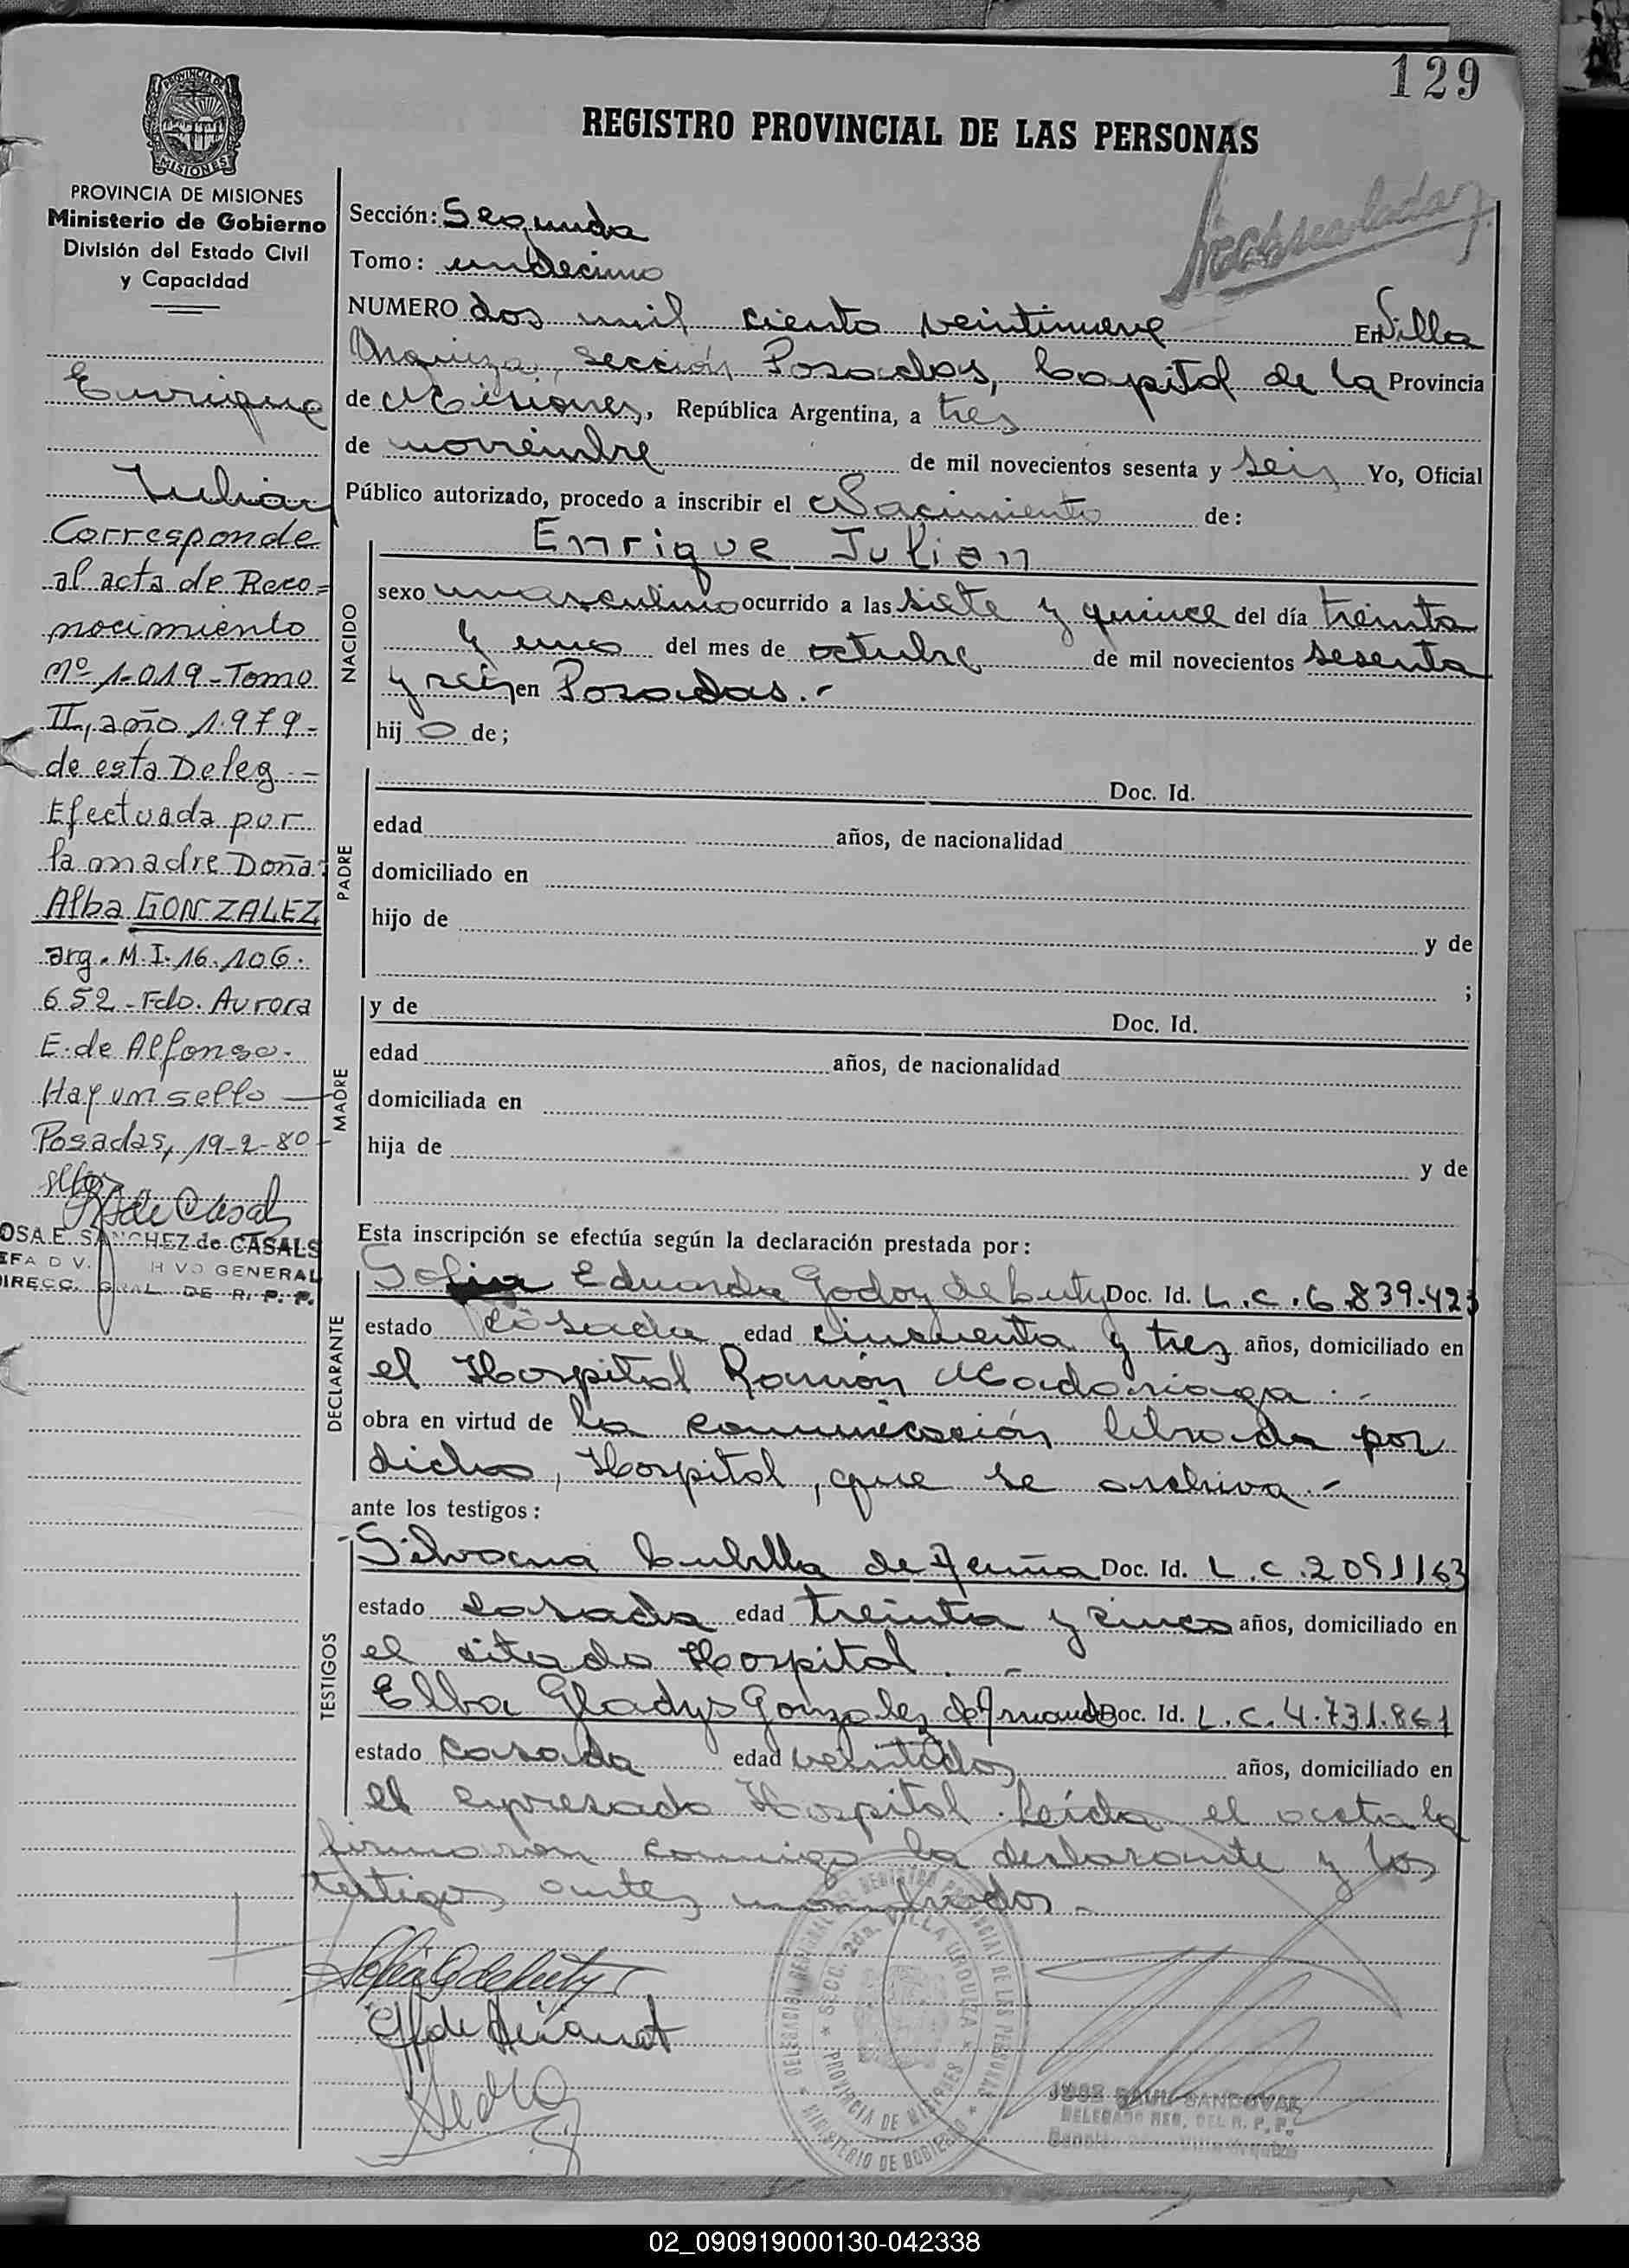 129
REGISTRO PROVINCIAL DE LAS PERSONAS
PROVINCIA DE MISIONES
PROVINCIA DE MISIONES
Ministerio de Gobierno
División del Estado Civil
y Capacidad
Enrique
Julian
Corresponde
al acta de Reco=
nocimiento
Nº 1.019-Tomo
II, año 1.979-
de esta Deleg.-
Efectuada por
la madre Doña:
Alba GONZALEZ
arg. M.I. 16.106.
652-Fdo. Aurora
E. de Alfonso.
Hay un sello
Posadas, 19-2-80
de Casals
OSA E. SANCHEZ de CASALS
GENERAL
DIRECC. GRAL. DE R. P. P.
Sección: Segunda
Tomo: undecimo
NUMERO dos mil ciento veintinueve En Villa
Urquiza, sección Posadas, Capital de la Provincia
de Misiones, República Argentina, a tres
de noviembre de mil novecientos sesenta y seis Yo, Oficial
Público autorizado, procedo a inscribir el Nacimiento de:
NACIDO
Enrique Julian
sexo masculino ocurrido a las siete y quince del día treinta
y uno del mes de octubre de mil novecientos sesenta
y seis en Posadas.-
hij o de;
PADRE
Doc. Id.
edad años, de nacionalidad
domiciliado en
hijo de y de
;
MADRE
y de Doc. Id.
edad años, de nacionalidad
domiciliada en
hija de y de
Esta inscripción se efectúa según la declaración prestada por:
DECLARANTE
Sofia Eduarda Godoy de Doc. Id. L.C. 6.839.423
estado casada edad cincuenta y tres años, domiciliado en
el Hospital Ramón Madariaga.-
obra en virtud de la comunicación librada por
dicho, Hospital, que se archiva.-
ante los testigos:
TESTIGOS
Silvana de Acuña Doc. Id. L.C. 2091163
estado casada edad treinta y cinco años, domiciliado en
el citado Hospital.-
Elba Gladys Gonzalez de Doc. Id. L.C. 4.731.861
estado casada edad veintidos años, domiciliado en
el expresado Hospital. Leída el acta la
firmaron conmigo la declarante y los
testigos antes nombrados.-
SECC. 2da. VILLA URQUIZA
PROVINCIA DE MISIONES
MINISTERIO DE GOBIERNO
DELEGACION REGIONAL DEL REGISTRO PROVINCIAL DE LAS PERSONAS
SAUL SANDOVAL
DELEGADO REG. DEL R. P. P.
02_090919000130-042338